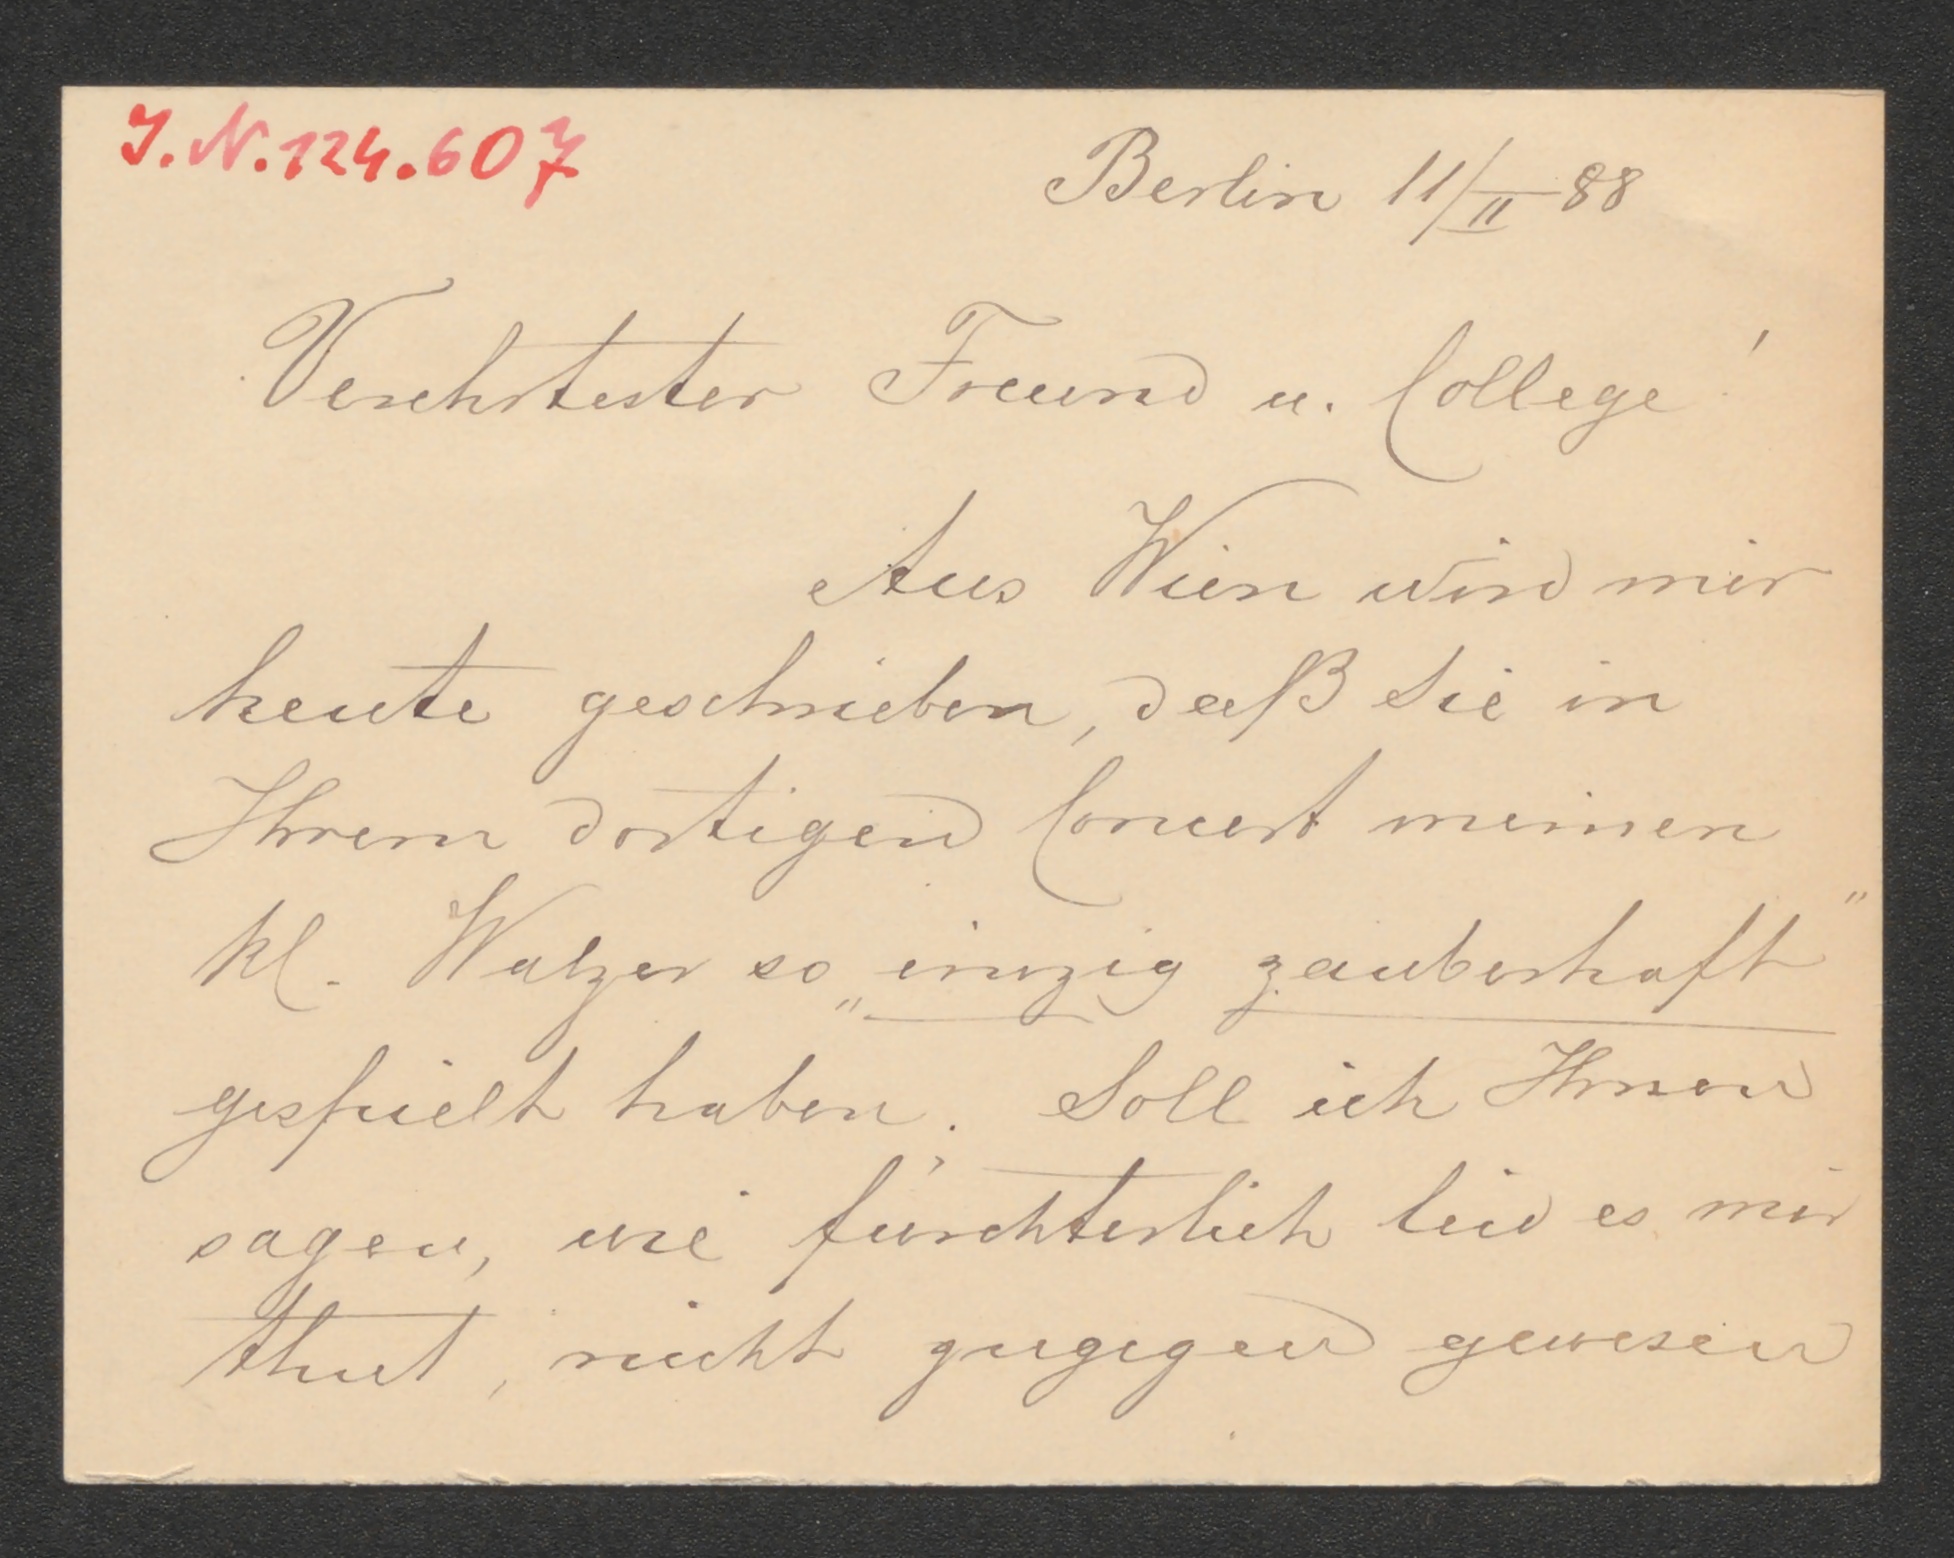 J.N.124.607
Berlin 11/II 88
Verehrtester Freund u. College!
Aus Wien wird mir
heute geschrieben, daß Sie in
Ihrem dortigen Concert meinen
kl. Walzer so „einzig zauberhaft"
gespielt haben. Soll ich Ihnen
sagen, wie fürchterlich leid es mir
thut, nicht zugegen gewesen